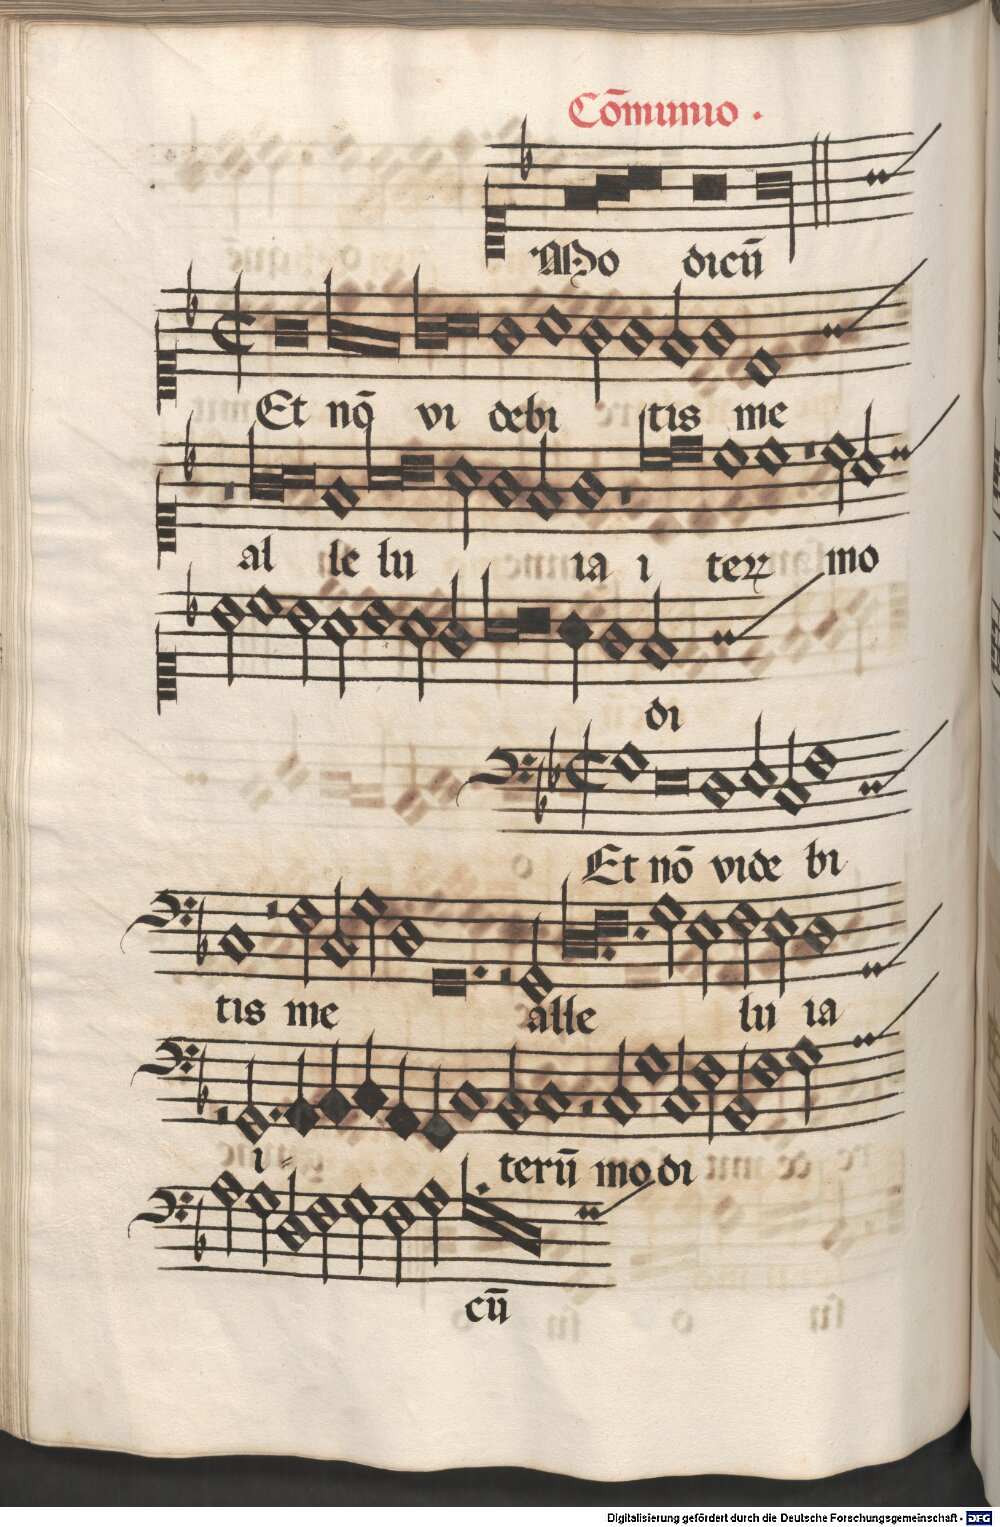 Cōmunio .
Mo dicū
Et nō vi debi tis me
al le lu ia i terꝝ mo
di
Et nō vide bi
tis me alle lu ia
i terū modi
cū
Digitalisierung gefördert durch die Deutsche Forschungsgemeinschaft - DFG